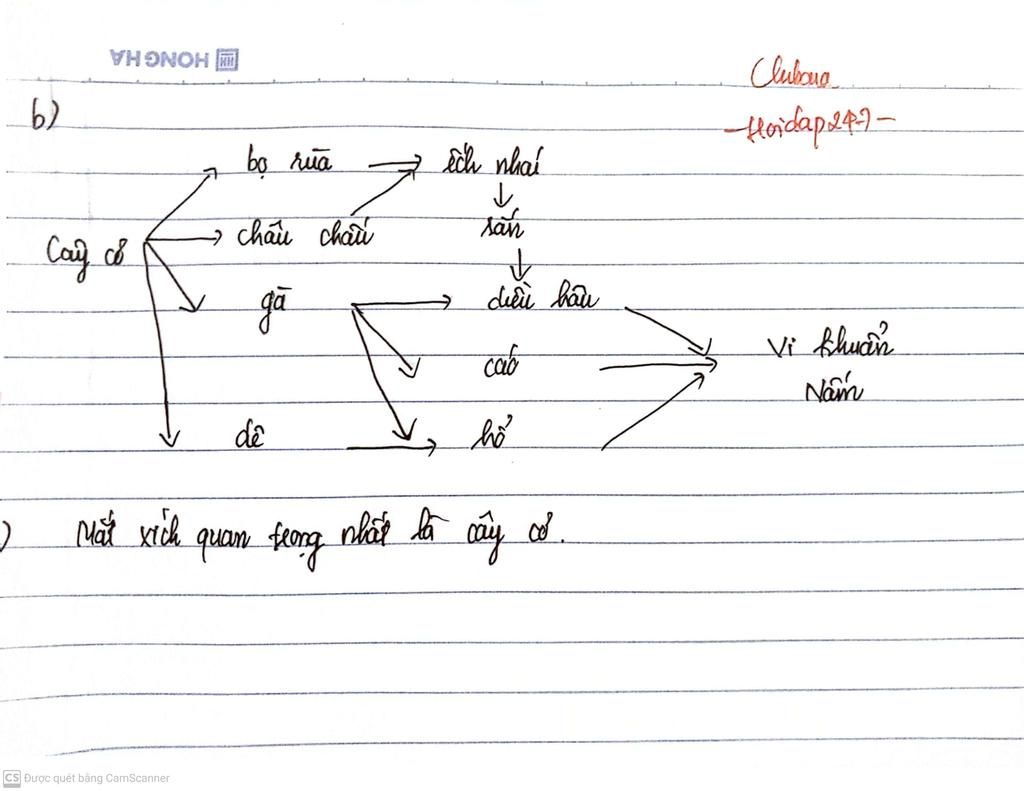 HONG HA
-Hoidap247-
b)
bọ rùa → ếch nhái
↓
Cây cỏ châu chấu rắn
↓
gà → diều hâu
cáo → Vi khuẩn
Nấm
dê → hổ
) Mắt xích quan trọng nhất là cây cỏ.
CS Được quét bằng CamScanner